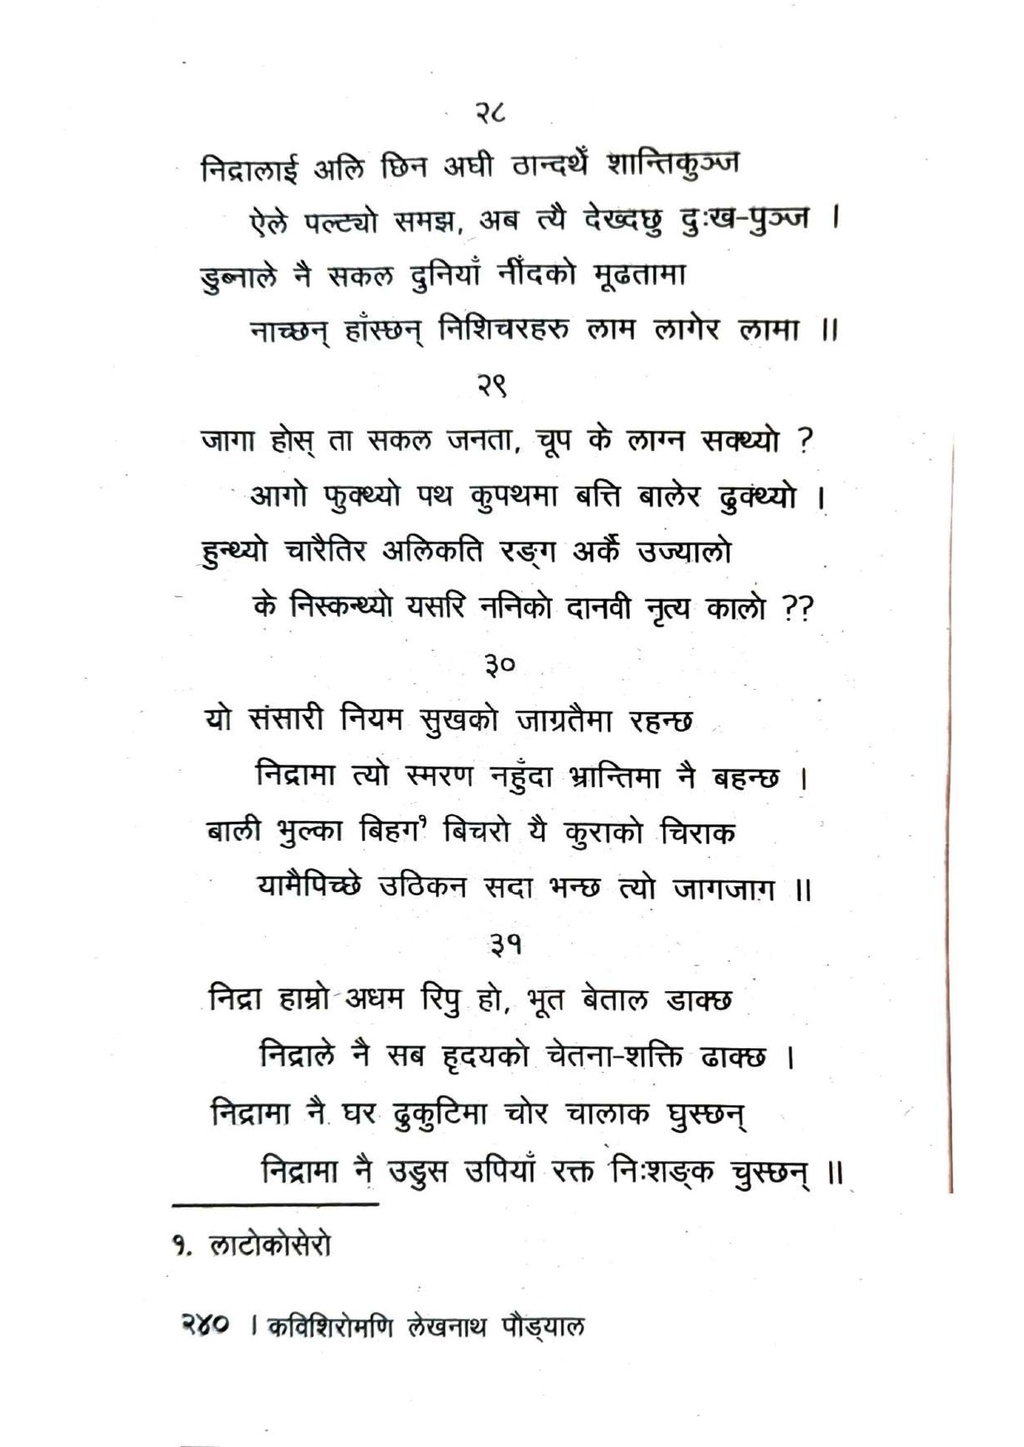 २८
निद्रालाई अलि छिन अघी ठान्दथेँ शान्तिकुञ्ज
ऐले पल्ट्यो समझ, अब त्यै देख्दछु दुःख-पुञ्ज ।
डुब्नाले नै सकल दुनियाँ नीँदको मूढतामा
नाच्छन् हाँस्छन् निशिचरहरु लाम लागेर लामा ॥
२९
जागा होस् ता सकल जनता, चूप के लाग्न सक्थ्यो ?
आगो फुक्थ्यो पथ कुपथमा बत्ति बालेर ढुक्थ्यो ।
हुन्थ्यो चारैतिर अलिकति रङ्ग अर्कै उज्यालो
के निस्कन्थ्यो यसरि ननिको दानवी नृत्य कालो ??
३०
यो संसारी नियम सुखको जाग्रतैमा रहन्छ
निद्रामा त्यो स्मरण नहुँदा भ्रान्तिमा नै बहन्छ ।
बाली भुल्का बिहग१ बिचरो यै कुराको चिराक
यामैपिच्छे उठिकन सदा भन्छ त्यो जागजाग ॥
३१
निद्रा हाम्रो अधम रिपु हो, भूत बेताल डाक्छ
निद्राले नै सब हृदयको चेतना-शक्ति ढाक्छ ।
निद्रामा नै घर ढुकुटिमा चोर चालाक घुस्छन्
निद्रामा नै उडुस उपियाँ रक्त निःशङ्क चुस्छन् ॥
१. लाटोकोसेरो
२४० । कविशिरोमणि लेखनाथ पौड्याल